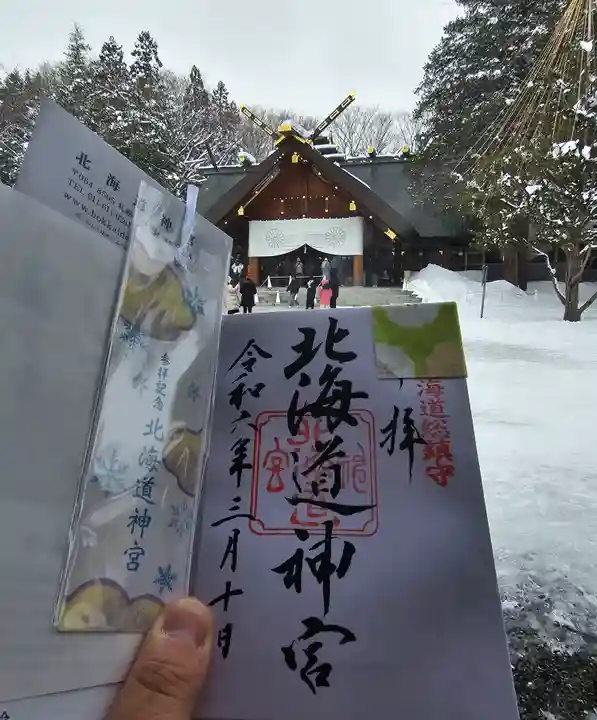 北海道神宮
参拝記念
北海道神宮
拝
北海道神宮
令和六年三月十日
海道総鎮守